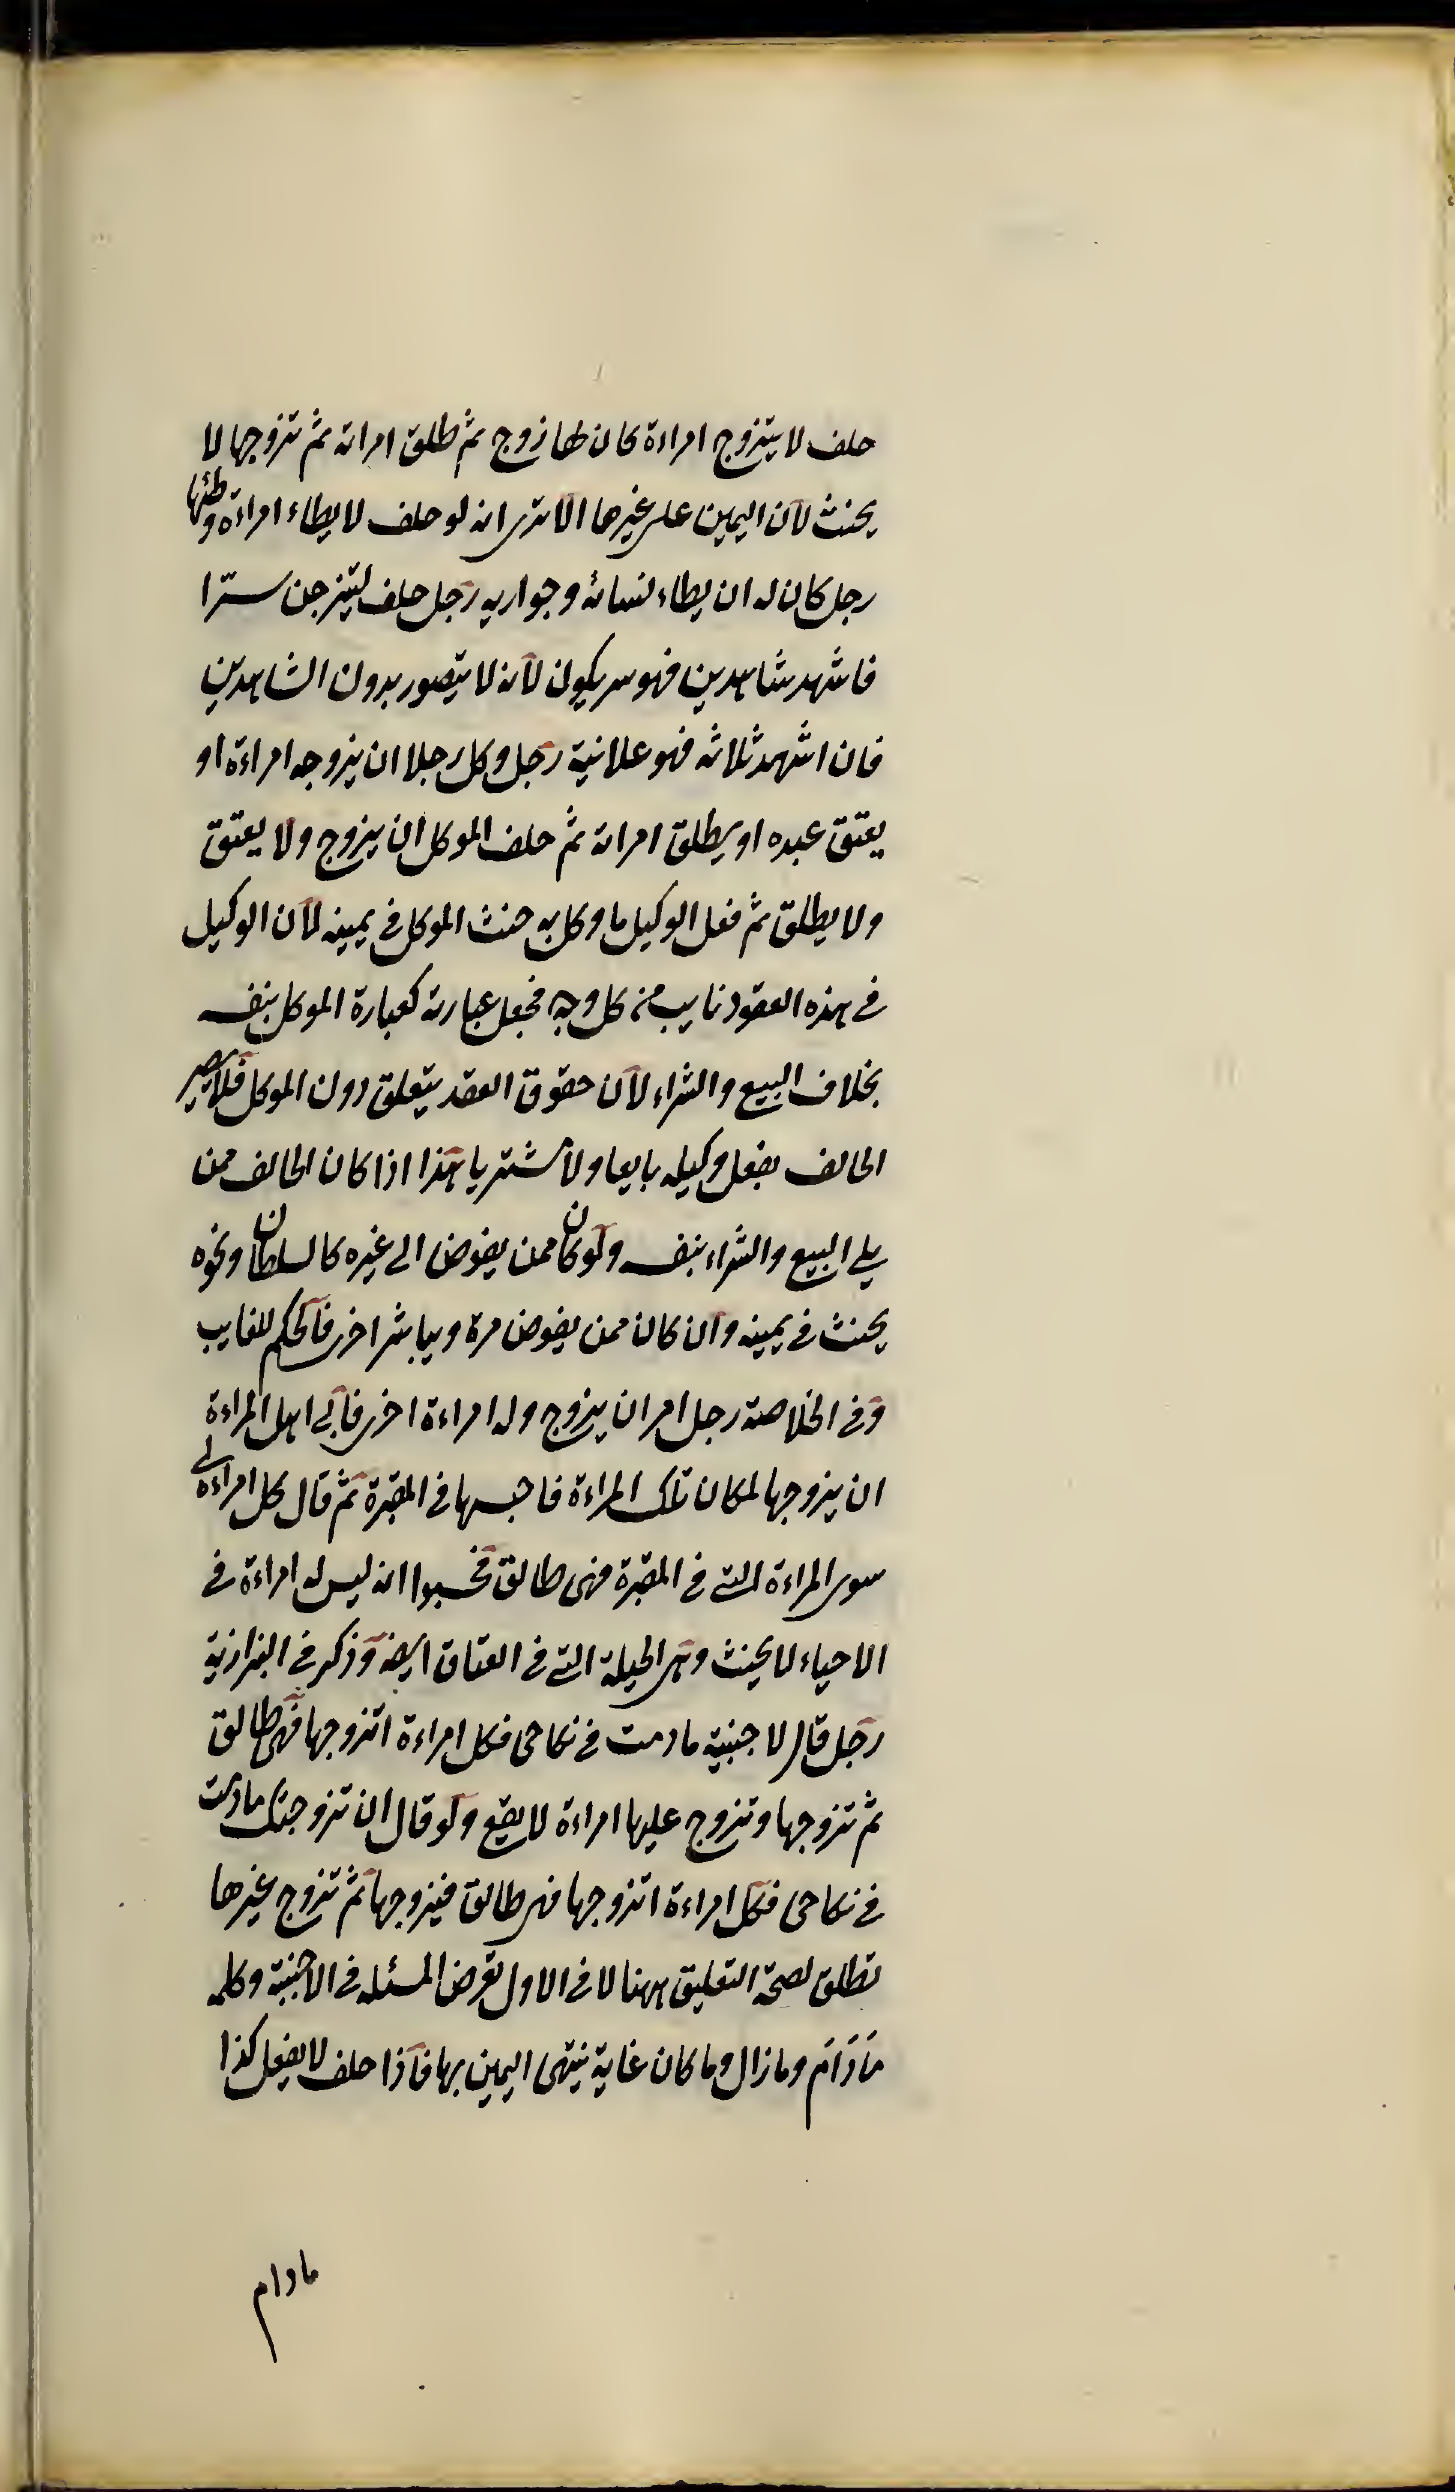 حلف لا يتزوج امراءة كان لها زوج ثم طلق امراته ثم تزوجها لا
يحنث لان اليمين على غيرها الا ترى انه لو حلف لا يطاء امراءة وطئها
رجل كان له ان يطاء نسائه وجواريه رجل حلف ليتزوجن سرّا
فاشهد شاهدين فهو سر يكون لانه لا يتصور بدون الشاهدين
فان اشهد ثلاثه فهو علانية رجل وكل رجلا ان يزوجه امراءة او
يعتق عبده او يطلق امراته ثم حلف الموكل ان يزوج ولا يعتق
ولا يطلق ثم فعل الوكيل ما وكل به حنث الموكل في يمينه لان الوكيل
في هذه العقود نايب من كل وجه فجعل عبارته كعبارة الموكل بنفسه
بخلاف البيع والشراء لان حقوق العقد يتعلق دون الموكل فلا يصير
الحالف بفعل وكيله بايعا ولا مشتريا هذا اذا كان الحالف ممن
يلي البيع والشراء بنفسه ولو كان ممن يفوض الى غيره كالسلطان ونحوه
يحنث في يمينه وان كان ممن يفوض مرة ويباشر اخرى فالحكم للغايب
وفي الخلاصة رجل امر ان يزوج وله امراءة اخرى فابى اهل المراءة
ان يزوجها لمكان تلك المراءة فاجلسها في المقبرة ثم قال كل امراءة لي
سوى المراءة التي في المقبرة فهى طالق فحسبوا انه ليس له امراءة في
الاحياء لا يحنث وهى الحيلة التي في العتاق ايضا وذكر في البزازية
رجل قال لاجنبية ما دمت في نكاحى فكل امراءة اتزوجها فهى طالق
ثم تزوجها وتزوج عليها امراءة لا يقع ولو قال ان تزوجتك ما دمت
في نكاحى فكل امراءة اتزوجها فهى طالق فيزوجها ثم تزوج غيرها
تطلق لصحة التعليق ههنا لا في الاول بفرض المسئله في الاجنبية وكلمه
مَا دَامَ وما زال وما كان غاية ينتهى اليمين بها فاذا حلف لا يفعل كذا
مادام